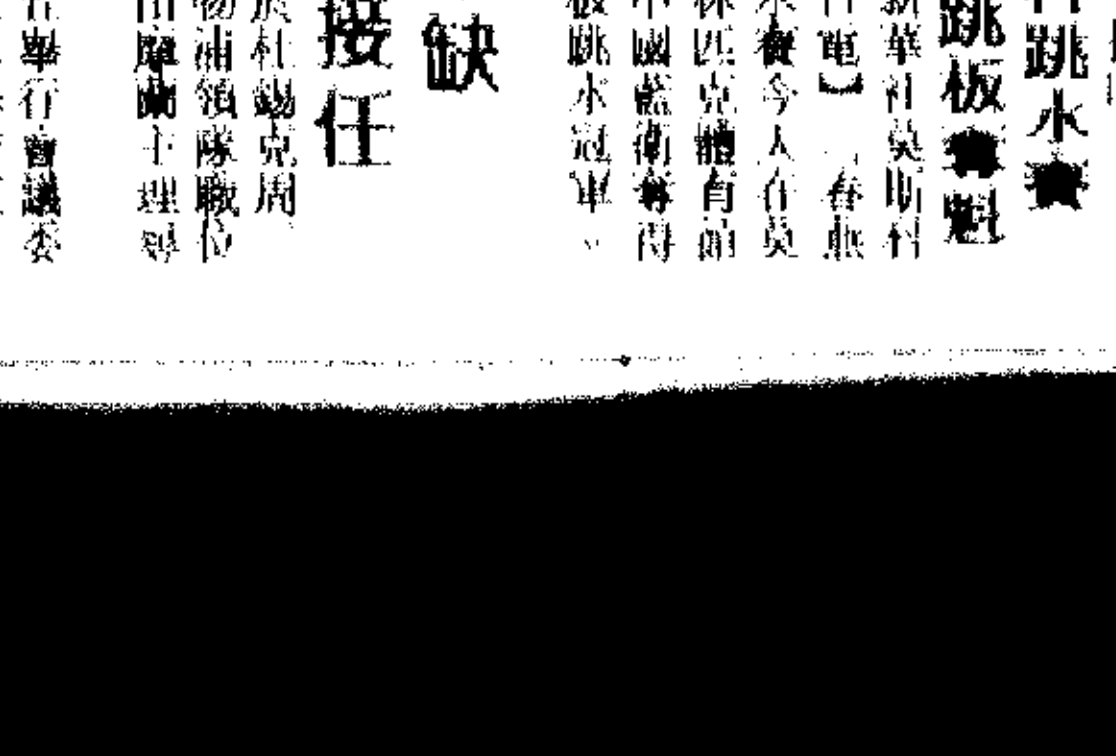 跳水賽
跳板賽魁
新華社莫斯科
電】春燕
水賽今人在莫
林匹克體育館
中國藍衛奪得
板跳水冠軍。
缺
接任
於杜錫克周
物浦領隊職位
摩蘭士理尋
舉行會議委